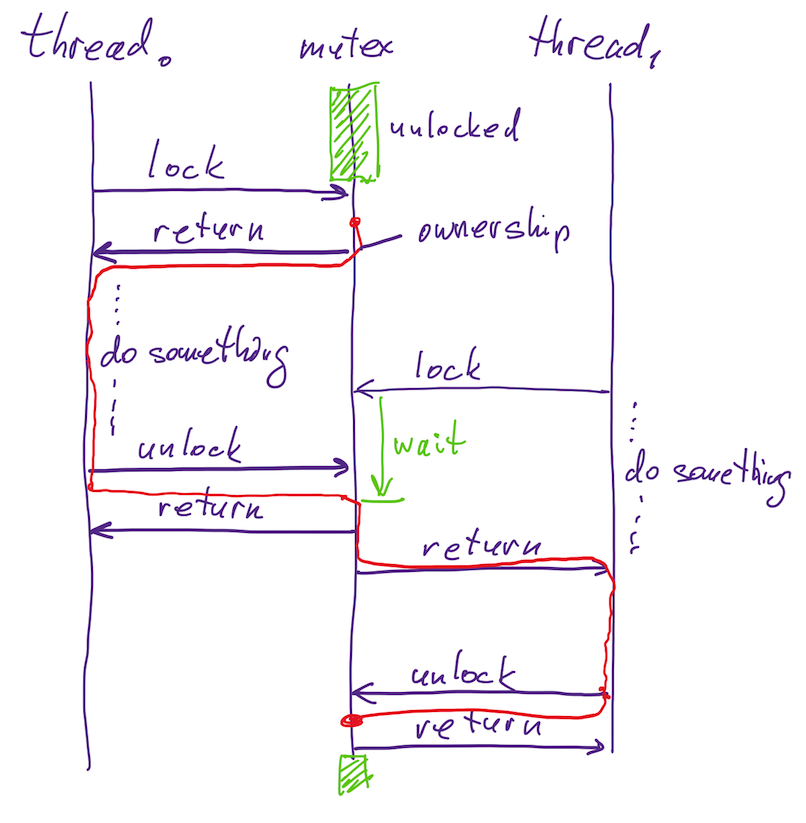 thread₀ mutex thread₁
unlocked
lock
return
ownership
do something
lock
wait
unlock
do something
return
return
unlock
return